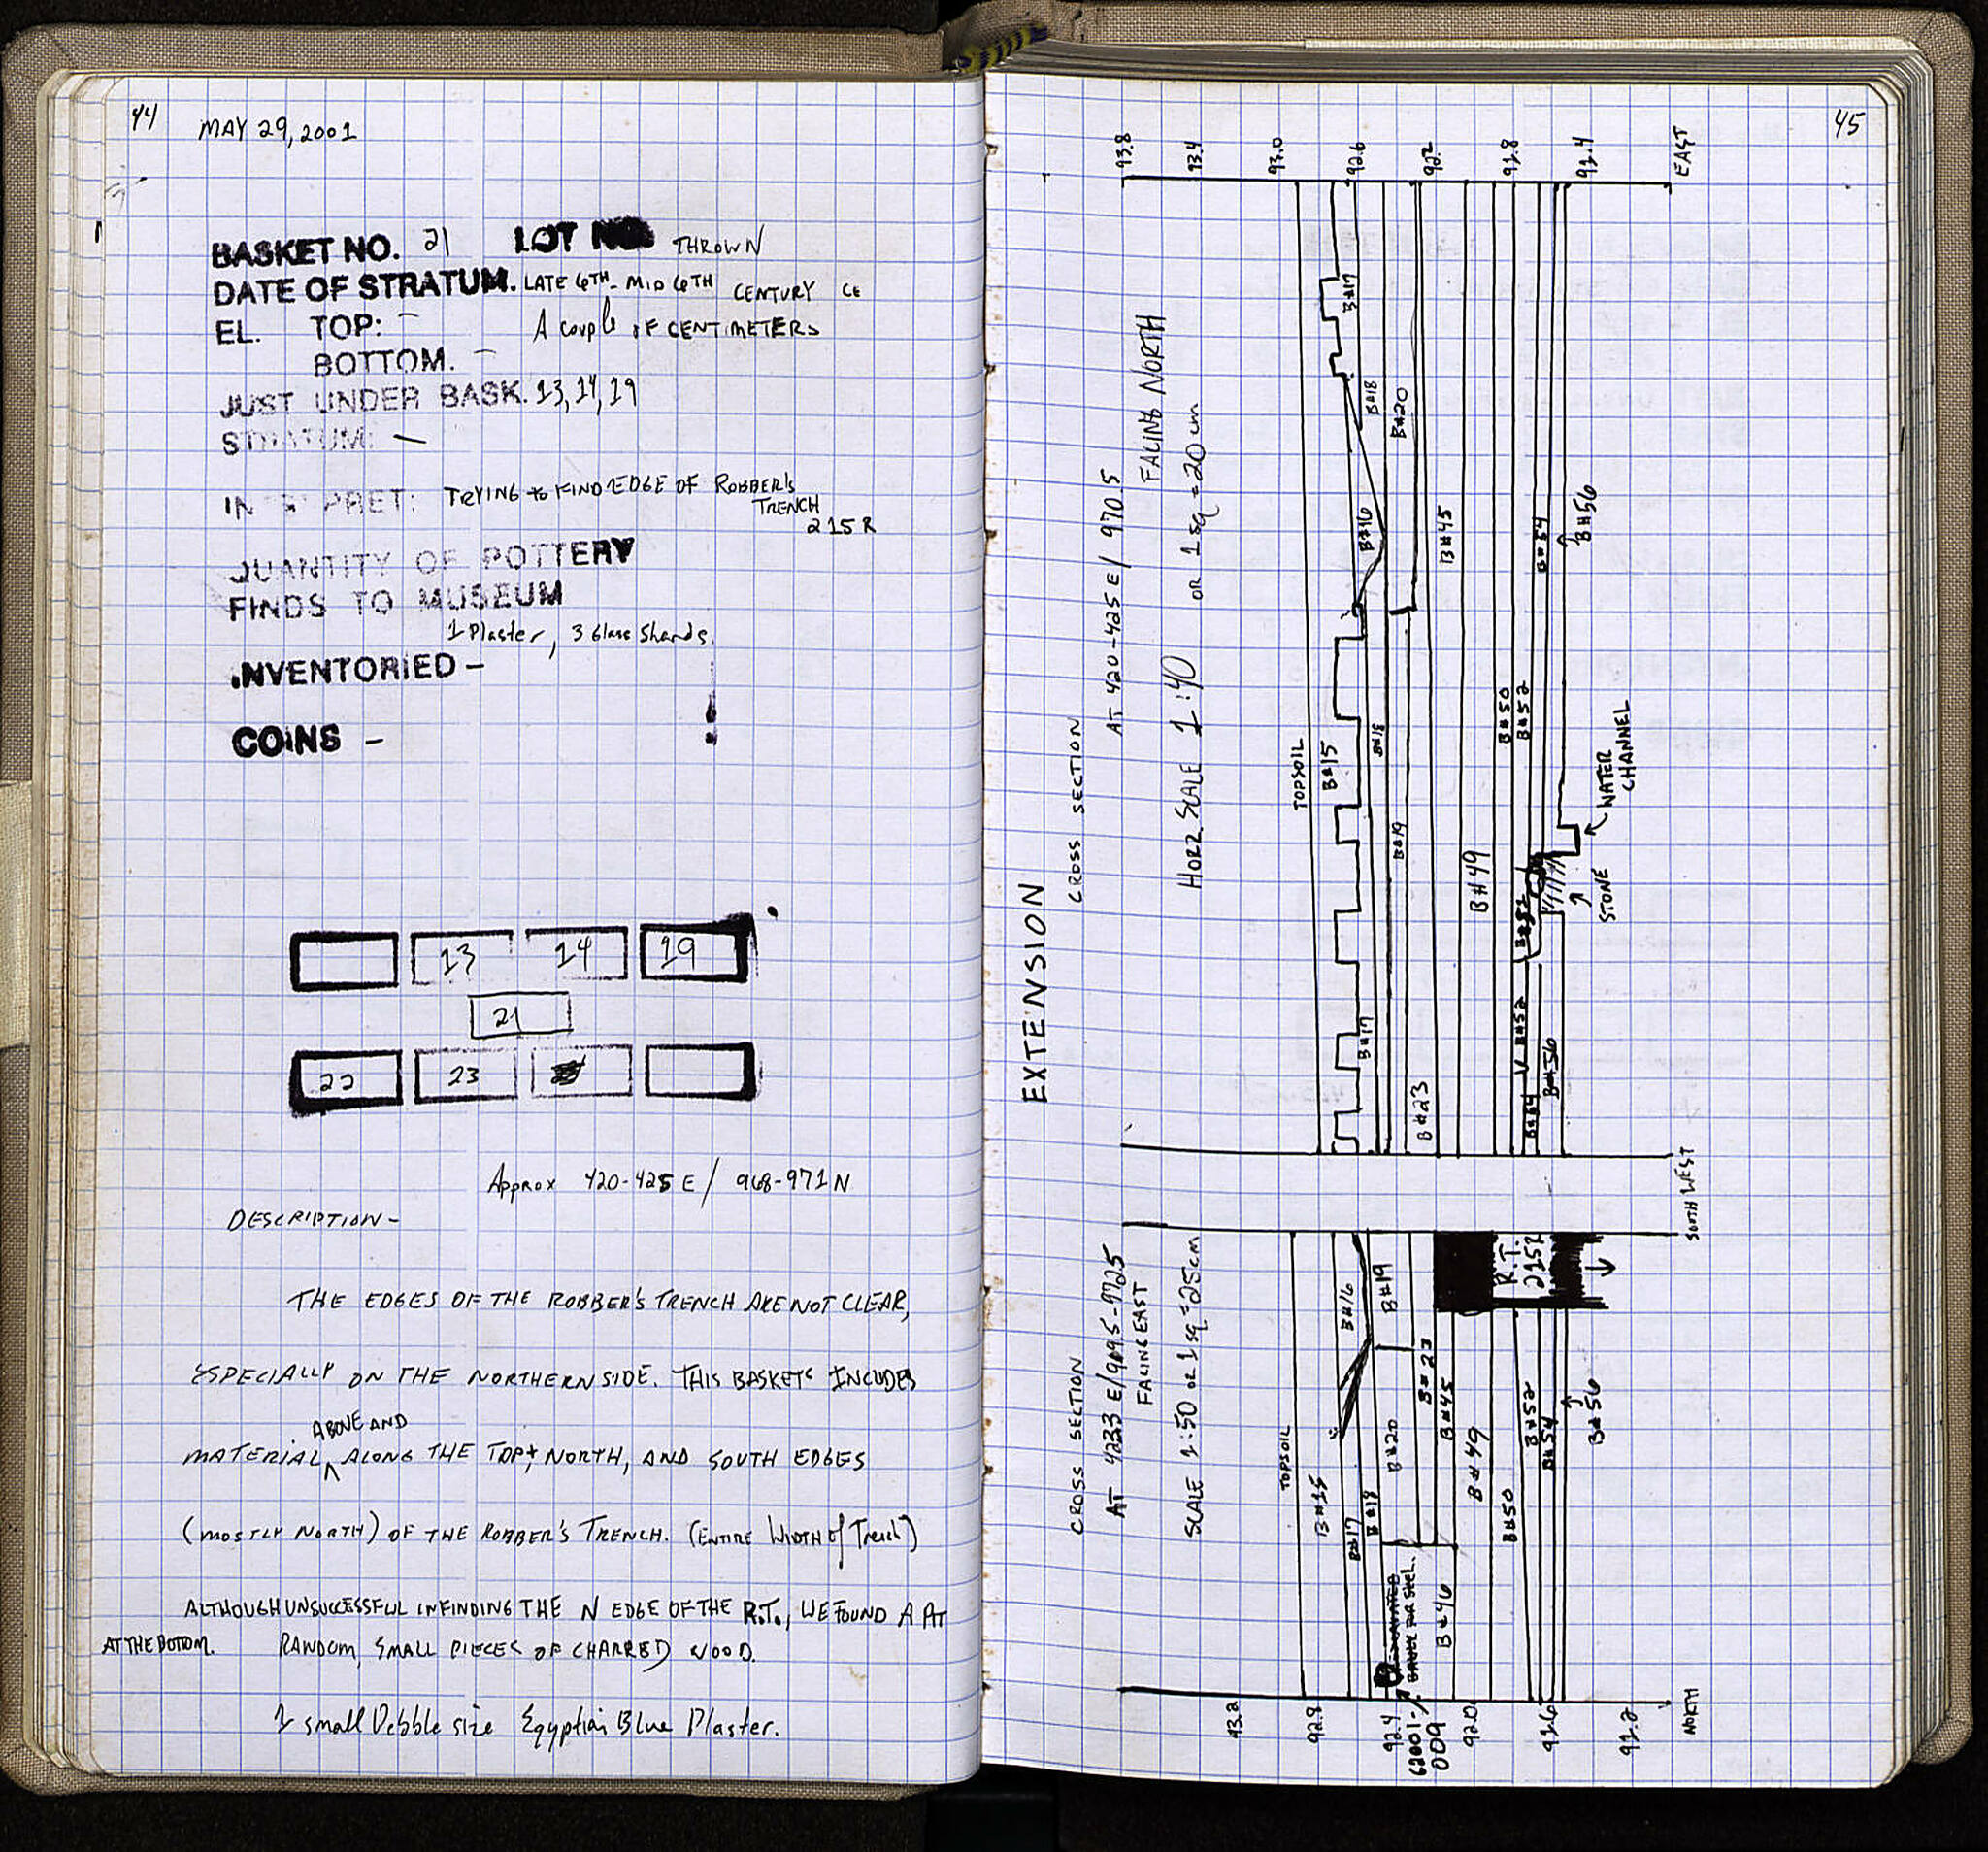 44
MAY 29, 2001
BASKET NO. 21 LOT NO THROWN
DATE OF STRATUM. LATE 6TH - MID 6TH CENTURY CE
EL. TOP: - A couple OF CENTIMETERS
BOTTOM. -
JUST UNDER BASK. 13, 14, 19
STRATUM: -
INTERPRET: TRYING to FIND EDGE OF ROBBER'S
TRENCH
215 R
QUANTITY OF POTTERY
FINDS TO MUSEUM
1 Plaster, 3 Glass Shards.
INVENTORIED -
COINS -
13 14 19
21
22 23
Approx 420-425 E / 968-971 N
DESCRIPTION -
THE EDGES OF THE ROBBER'S TRENCH ARE NOT CLEAR,
ESPECIALLY ON THE NORTHERN SIDE. THIS BASKET INCLUDES
ABOVE AND
MATERIAL ALONG THE TOP, NORTH, AND SOUTH EDGES
(MOSTLY NORTH) OF THE ROBBER'S TRENCH. (ENTIRE WIDTH of Trench)
ALTHOUGH UNSUCCESSFUL IN FINDING THE N EDGE OF THE R.T., WE FOUND A AT
AT THE BOTTOM. RANDOM, SMALL PIECES OF CHARRED WOOD.
1 small Pebble size Egyptian Blue Plaster.
45
EXTENSION
CROSS SECTION
AT 420-425 E / 970.5
FACING NORTH
HORZ SCALE 1:40 OR 1 sq = 20 cm
93.8
93.4
93.0
92.6
92.2
91.8
91.4
EAST
TOPSOIL
B#15
B#17
B#18
B#20
B#16
B#45
B#54
B#56
B#18
B#19
B#50
B#52
B#49
WATER
CHANNEL
STONE
B#17
B#23
B#52
B#54
B#56
SOUTH WEST
CROSS SECTION
AT 423.3 E / 969.5-972.5
FACING EAST
SCALE 1:50 or 1 sq = 25cm
TOPSOIL
B#15
B#16
B#17
B#18
B#19
B#20
B#23
B#45
B#46
B#49
B#50
B#52
B#54
B#56
R.T.
215R
93.2
92.8
92.4
92.0
91.6
91.2
NORTH
G2001-
009